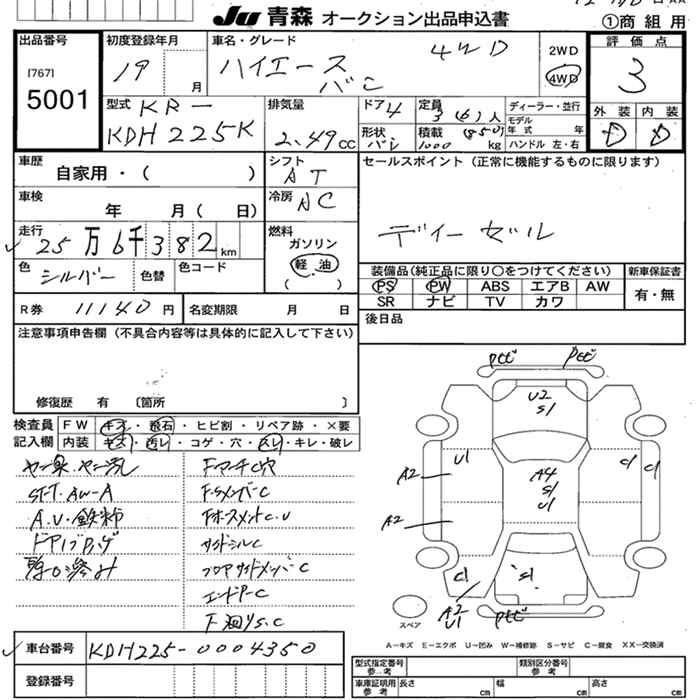 Ju 青森 オークション出品申込書
①商組用
出品番号
[767]
5001
初度登録年月
19 月
車名・グレード
ハイエース 4WD
バン
2WD
4WD
評価点
3
外装 内装
D D
型式 KR-
KDH225K
排気量
2.49cc
ドア 4
形状 バン
定員 3(6)人
積載 (850)
1000 kg
ディーラー・並行
モデル年式 年
ハンドル 左・右
車歴
自家用・( )
シフト
AT
セールスポイント(正常に機能するものに限ります)
ディーゼル
車検
年 月( 日)
冷房
AC
走行
25万6千382km
燃料
ガソリン
軽油
( )
色
シルバー
色替
色コード
装備品(純正品に限り○をつけてください)
PS PW ABS エアB AW
SR ナビ TV カワ
新車保証書
有・無
R券 11140円
名変期限 月 日
後日品
注意事項申告欄(不具合内容等は具体的に記入して下さい)
修復歴 有 〔箇所 〕
検査員記入欄
FW キズ・飛石・ヒビ割・リペア跡・×要
内装 キズ・汚レ・コゲ・穴・スレ・キレ・破レ
AW-A
A.U・鉄粉
F.サメンバーC
サイドシルC
フロアサイドメンバーC
エンドP-C
車台番号 KDH225-0004350
登録番号
U2
S1
U1
A2
A2
A4
S1
U1
C1
C1
C1
S1
A2
U1
スペア
A-キズ E-エクボ U-凹み W-補修跡 S-サビ C-腐食 XX-交換済
型式指定番号
参考
類別区分番号
参考
車庫証明用
参考
長さ cm
幅 cm
高さ cm